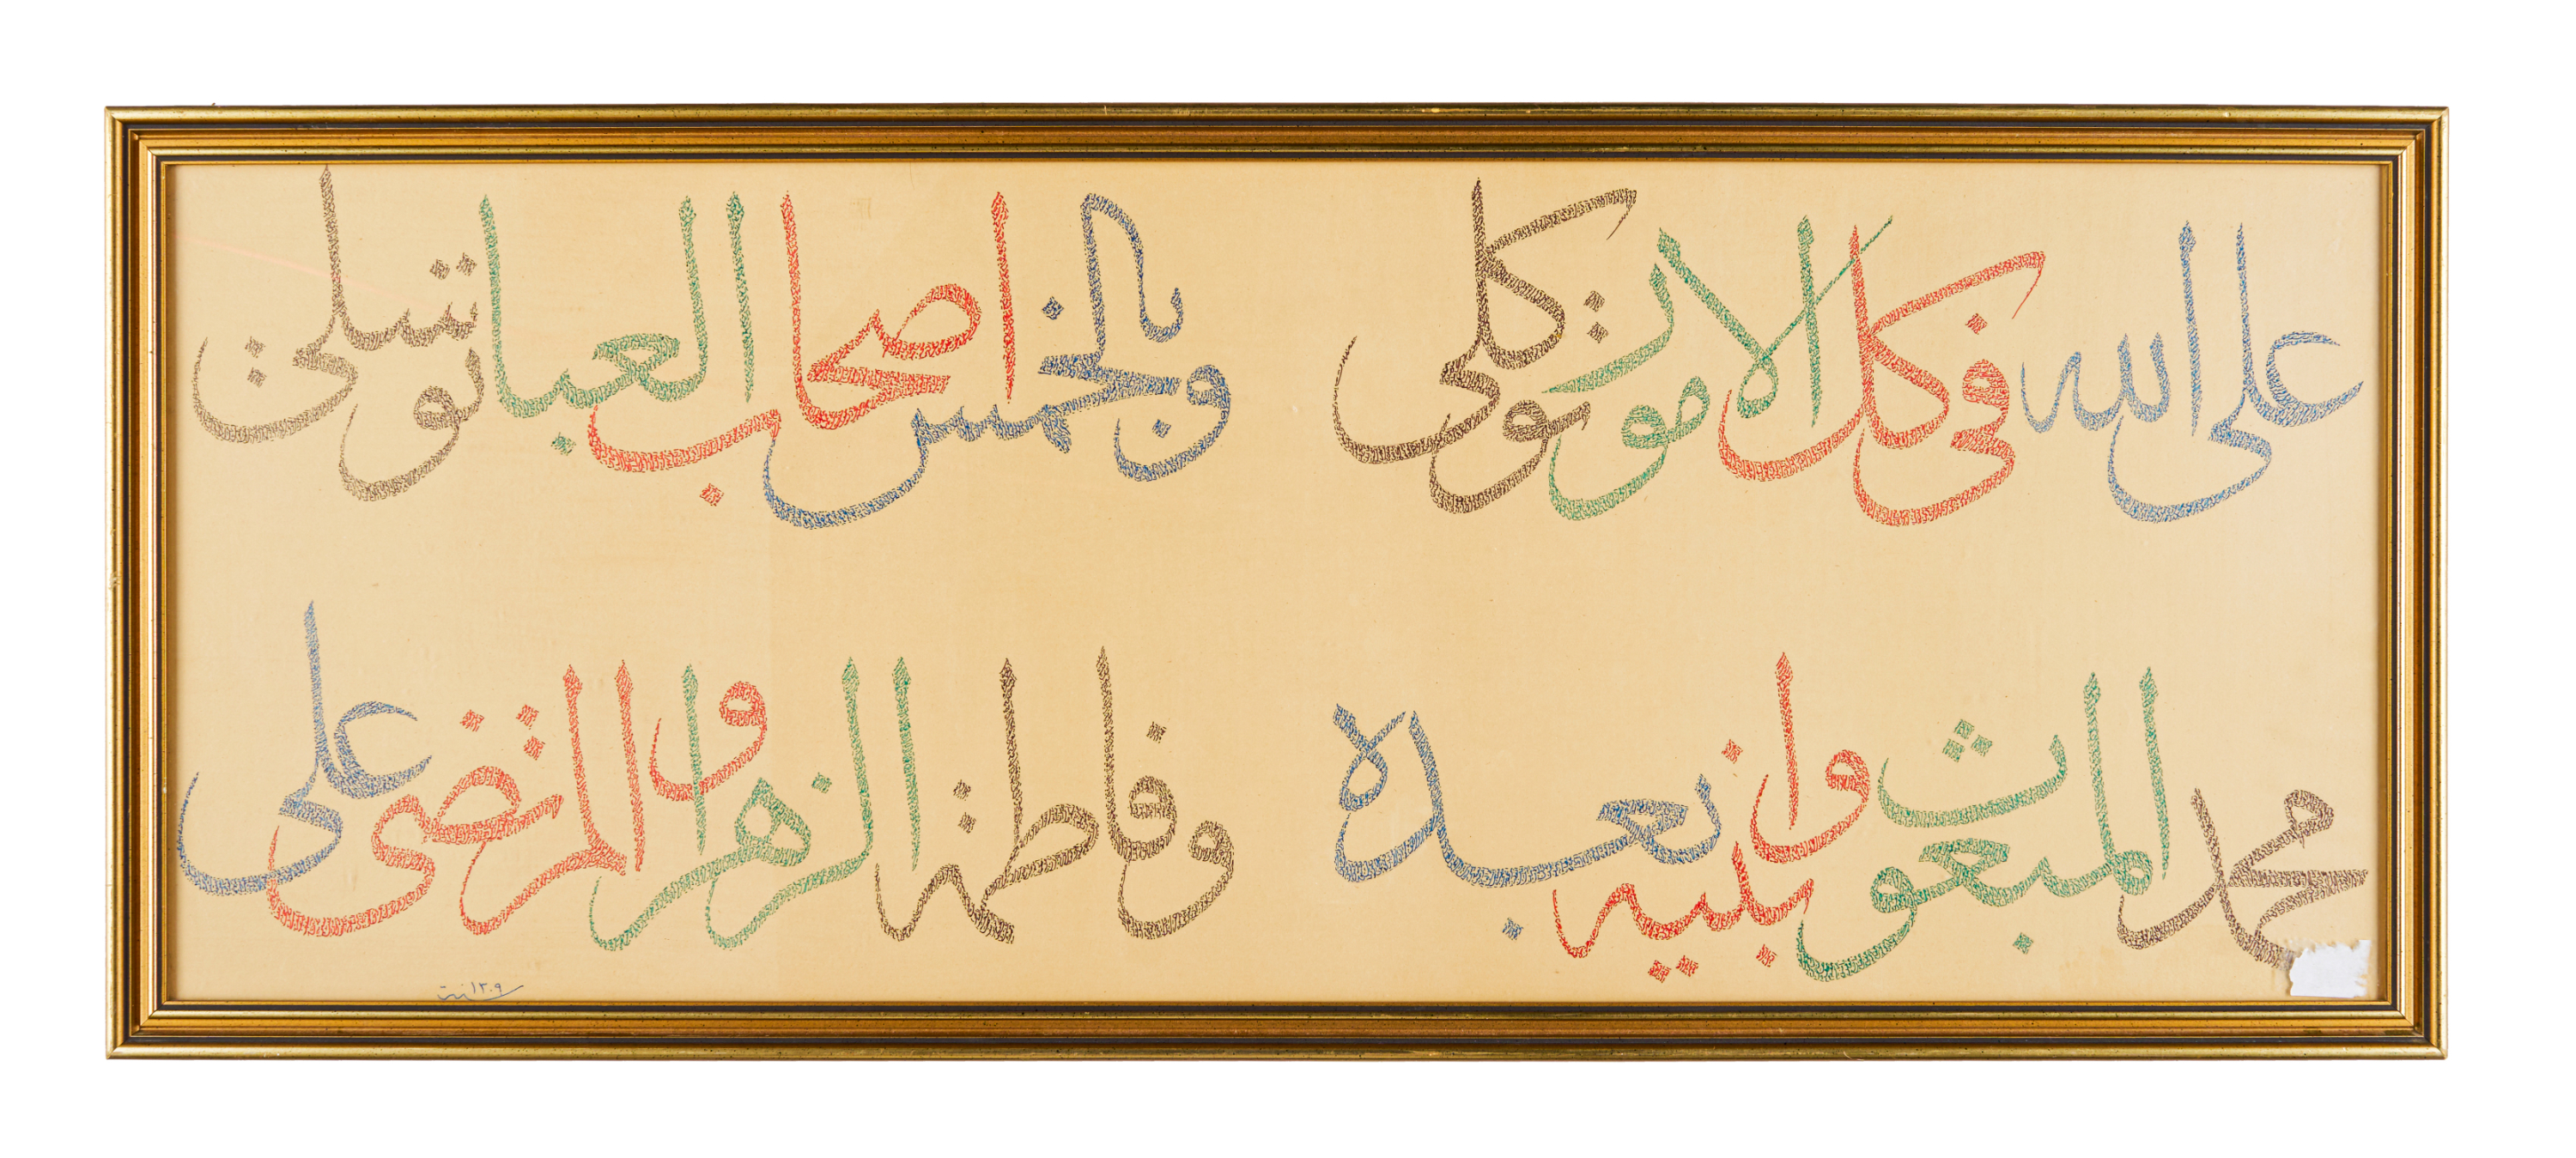 على الله فى كل الامور توكلى وبالخمس اصحاب العبا توسلي
محمد المبعوث وابنيه بعده وفاطمة الزهرا والمرتضى على